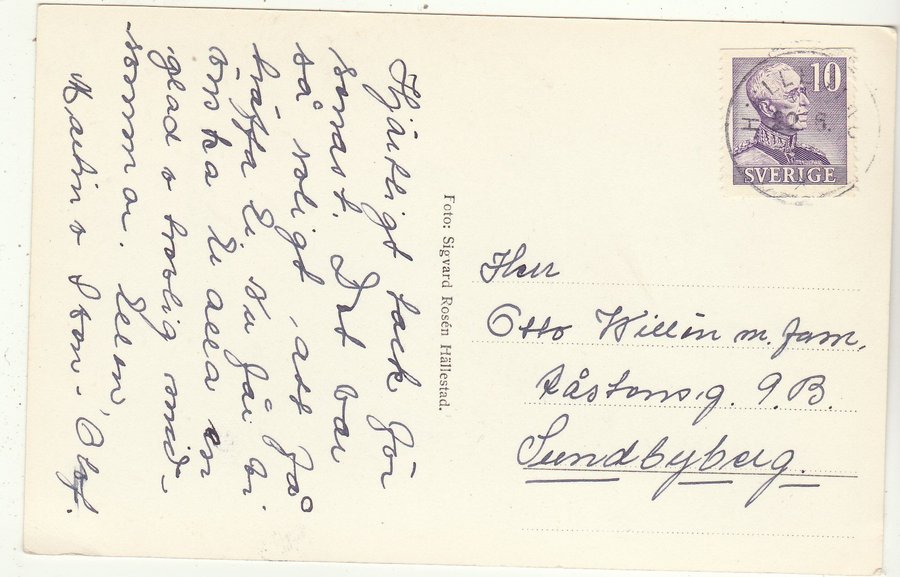 Hjärtligt tack för
senast. Det var
så roligt, att få
träffa Er. Nu får vi
önska Er alla en
glad o trevlig mid-
sommar. Ellen,
Martin o Sven-Olof.
Foto: Sigvard Rosén Hällestad.
10
SVERIGE
Herr
Otto Willén m. fam.
Råstensg. 9. B.
Sundbyberg.